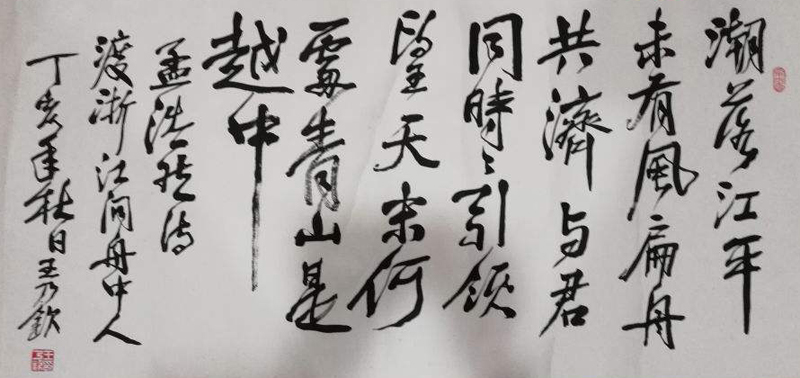 潮落江平
未有風扁舟
共濟与君
同時時引領
望天末何
處青山是
越中
孟浩然诗
渡浙江问舟中人
丁亥年秋日王乃钦